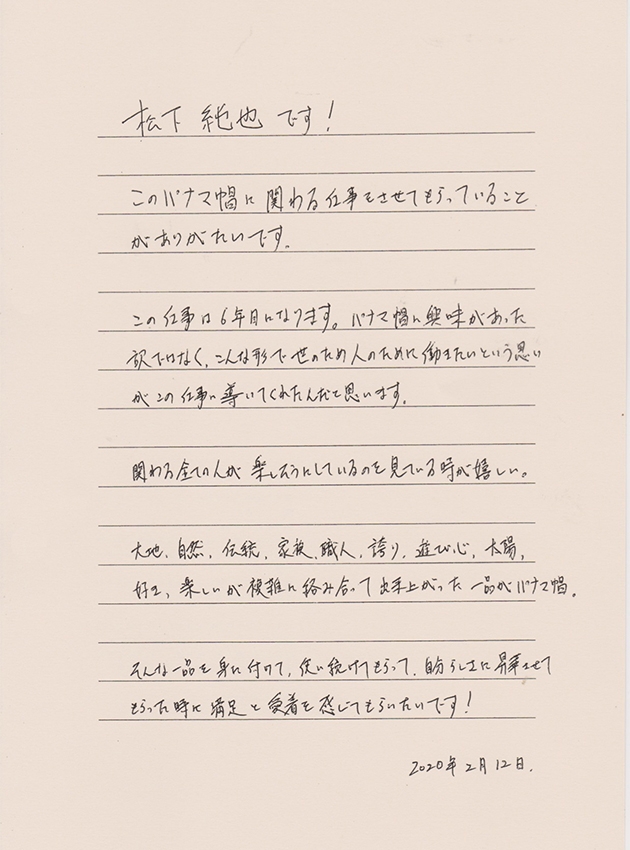 松下 純也 です!
このパナマ帽に関わる仕事をさせてもらっていること
がありがたいです。
この仕事は6年目になります。パナマ帽に興味があった
訳ではなく、こんな形で世のため人のために働きたいという思い
がこの仕事に導いてくれたんだと思います。
関わる全ての人が楽しそうにしているのを見ている時が嬉しい。
大地、自然、伝統、家族、職人、誇り、遊び心、太陽、
好き、楽しいが複雑に絡み合って出来上がった一品がパナマ帽。
そんな一品を身に付けて、使い続けてもらって、自分らしさに昇華させて
もらった時に満足と愛着を感じてもらいたいです!
2020年2月12日.